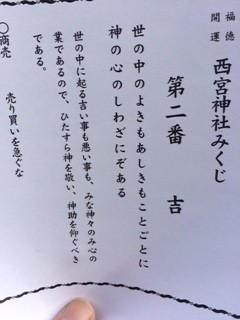 開運
福徳
西宮神社みくじ
第二番 吉
世の中のよきもあしきもことごとに
神の心のしわざにぞある
世の中に起る吉い事も悪い事も、みな神々のみ心の
業であるので、ひたすら神を敬い、神助を仰ぐべき
である。
○商売
売り買いを急ぐな